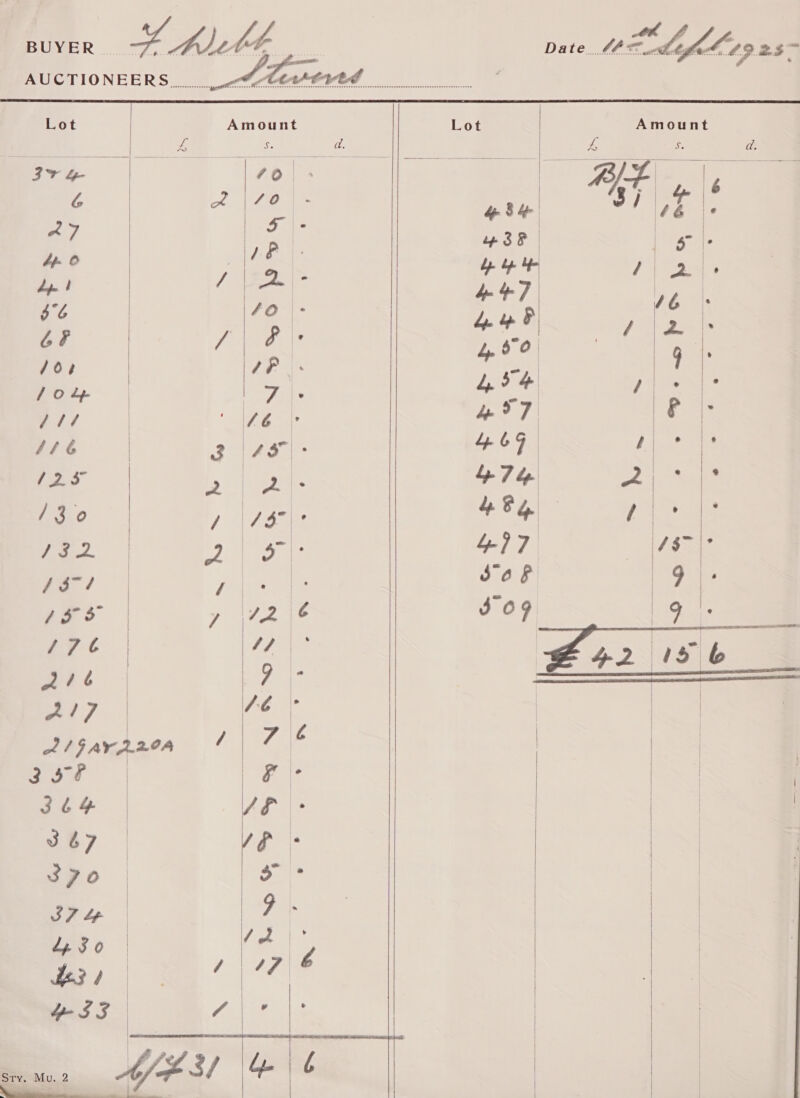 BUYER F. Webb
Date 11th Sept 1925
AUCTIONEERS Stevens
Lot Amount
£ s. d.
374 10 -
6 2 10 -
27 5 -
40 18 -
41 1 2 -
56 10 -
68 1 8 -
101 18 -
104 7 -
111 16 -
116 3 15 -
125 2 2 -
130 1 15 -
132 2 5 -
151 1 - -
155 1 12 6
176 11 -
216 9 -
217 16 -
219AY220A 1 7 6
358 8 -
364 18 -
367 18 -
370 5 -
374 9 -
430 12 -
431 1 17 6
433 1 - -
C/F 31 4 6
Sty. Mu. 2
Lot Amount
£ s. d.
B/F 31 4 6
434 16 -
438 5 -
444 1 2 -
447 16 -
448 1 2 -
450 9 -
454 1 - -
457 8 -
469 1 - -
474 2 - -
484 1 - -
497 15 -
508 9 -
509 9 -
£ 42 15 6